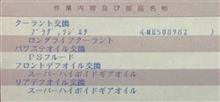 作業内容及び部品名称
クーラント交換
プラグ,ラジエタ (MU508982)
ロングライフクーラント
パワステオイル交換
PSフルード
フロントデフオイル交換
スーパーハイポイドギアオイル
リアデフオイル交換
スーパーハイポイドギアオイル